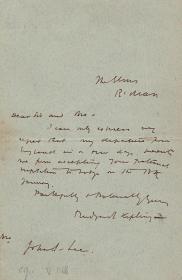 The Elms
Dear Sir and Bro -
I can only express my
regret that my departure from
England in a few days prevents
me from accepting your fraternal
invitation to Lodge on the
January.
Faithfully & fraternally yours
Rudyard Kipling
John S. Lee.